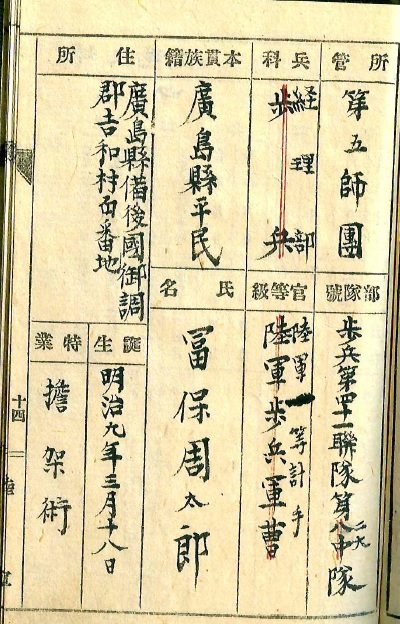 所管
第五師團
兵科
経理部
歩兵
本貫族籍
廣島縣平民
住所
廣島縣備後國御調
郡吉和村百番地
部隊號
歩兵第四十一聯隊第八中隊
官等級
陸軍一等計手
陸軍歩兵軍曹
氏名
冨保周太郎
誕生
明治九年三月十八日
特業
擔架術
十四